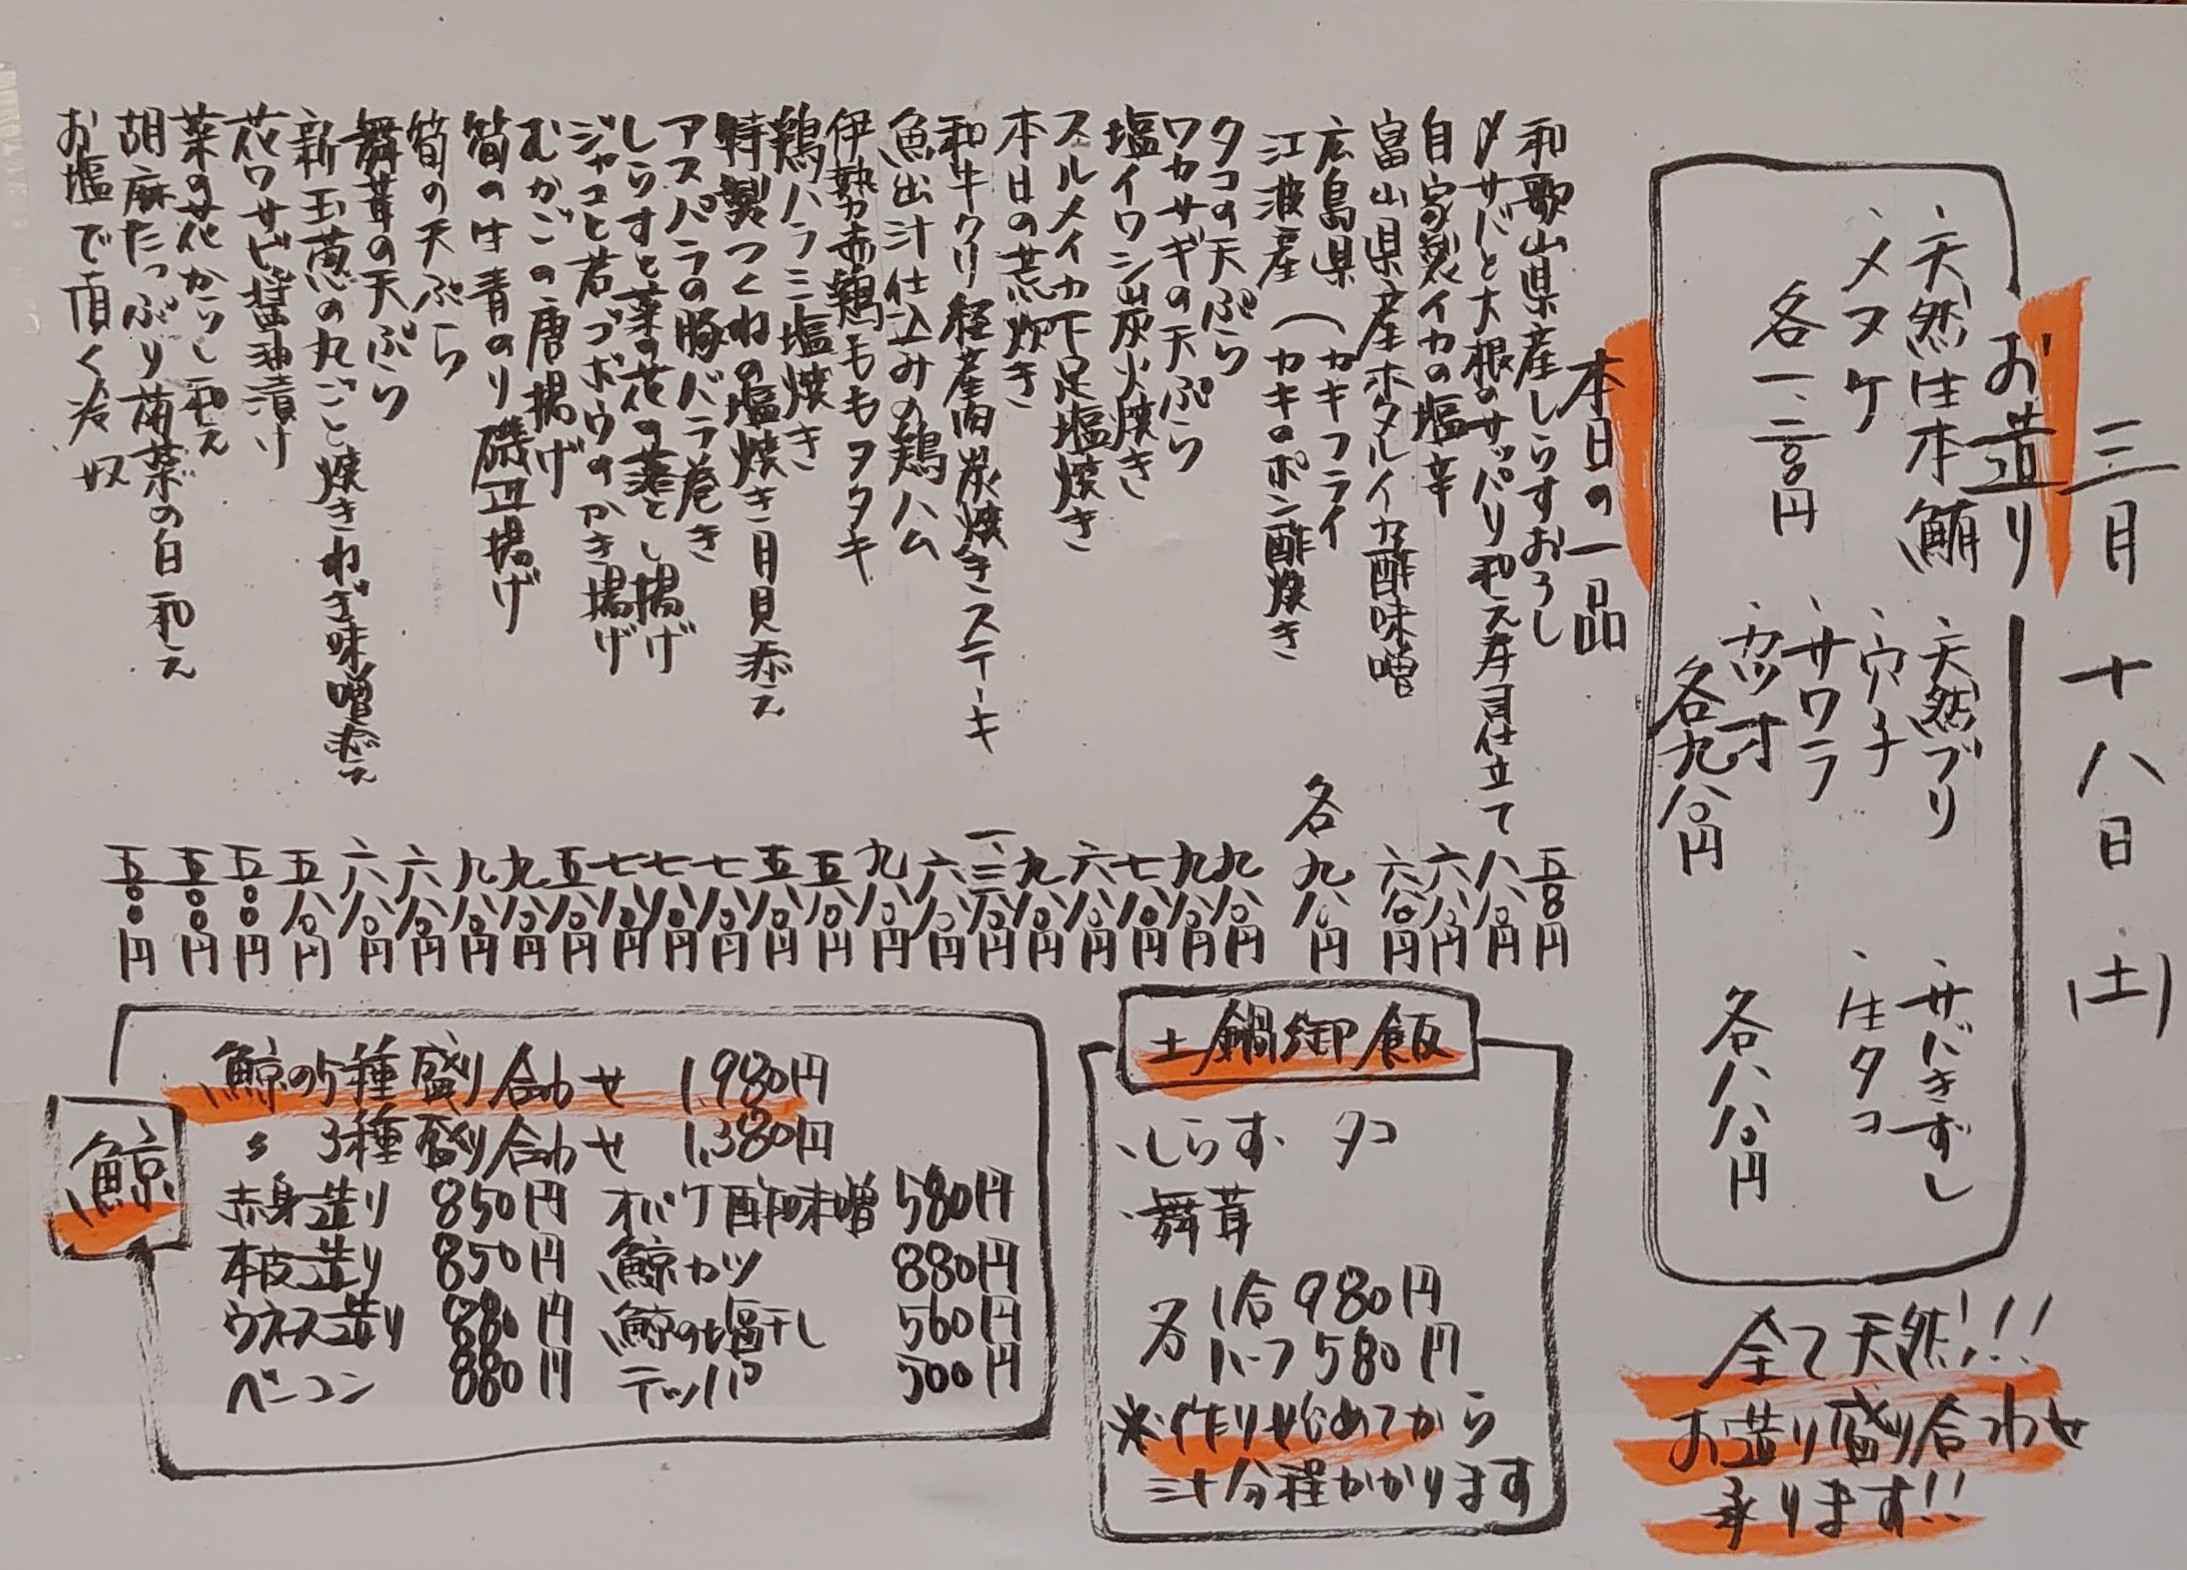 三月十八日(土)
お造り
、天然生本鮪
、メヌケ
各一、二八〇円
、天然ブリ
、穴子
、サワラ
、カツオ
各九八〇円
、サバきずし
、生タコ
各八八〇円
全て天然!!
お造り盛り合わせ
承ります!!
本日の一品
和歌山県産しらすおろし 五八〇円
〆サバと大根のサッパリ和え寿司仕立て 八八〇円
自家製イカの塩辛 六八〇円
富山県産ホタルイカ酢味噌 六八〇円
広島県 (カキフライ
江波産 (カキのポン酢焼き
各九八〇円
タコの天ぷら 九八〇円
ワカサギの天ぷら 九八〇円
塩イワシ炭火焼き 七八〇円
スルメイカ下足塩焼き 六八〇円
本日の荒炊き 九八〇円
和牛クリ 経産肉炭焼きステーキ 一、三八〇円
魚出汁仕込みの鶏ハム 六八〇円
伊勢赤鶏ももタタキ 九八〇円
鶏ハラミ塩焼き 五八〇円
特製つくねの塩焼き月見添え 五八〇円
アスパラの豚バラ巻き 七八〇円
しらすと菜の花の落とし揚げ 七八〇円
ジャコと若ゴボウのかき揚げ 七八〇円
むかごの唐揚げ 五八〇円
筍の生青のり磯辺揚げ 九八〇円
筍の天ぷら 九八〇円
舞茸の天ぷら 六八〇円
新玉葱の丸ごと焼きねぎ味噌添え 六八〇円
花ワサビ醤油漬け 五八〇円
菜の花からし和え 五〇〇円
胡麻たっぷり菊菜の白和え 五〇〇円
お塩で頂く冷奴 五〇〇円
土鍋御飯
・しらす・タコ
・舞茸
各 1合980円
ハーフ580円
※作り始めてから
三十分程かかります
鯨
鯨の5種盛り合わせ 1,980円
〃 3種盛り合わせ 1,380円
赤身造り 850円 オバケ酢味噌 580円
本皮造り 850円 鯨カツ 880円
ウネス造り 880円 鯨の塩干し 560円
ベーコン 880円 テッパ 500円